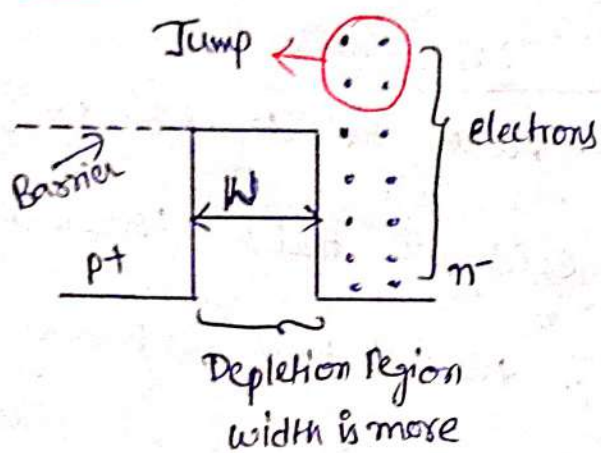 Jump
electrons
Barrier
W
p+
n-
Depletion region
width is more